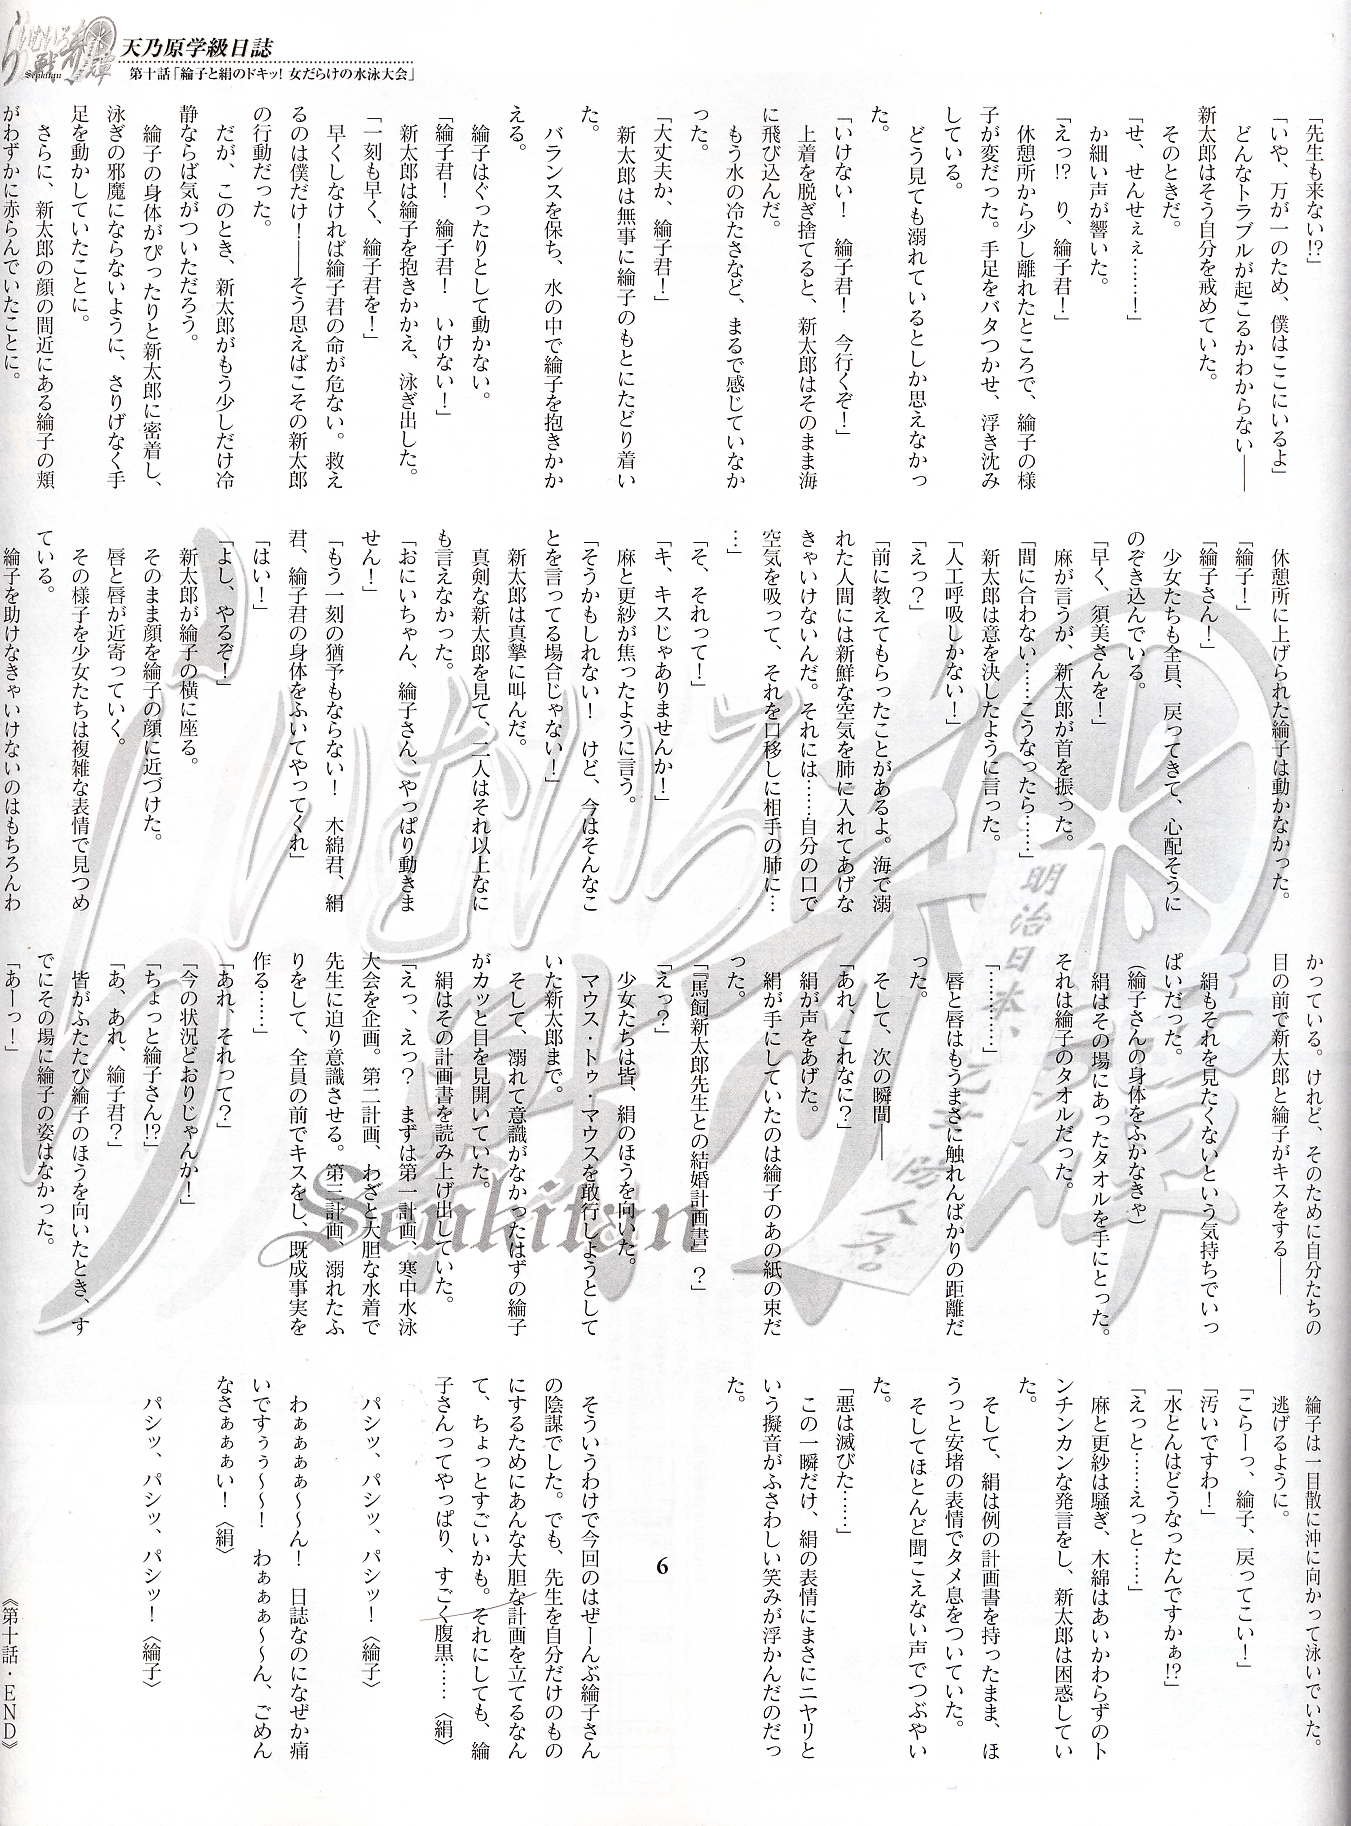 りむいろ戦奇譚
Senkitan
天乃原学級日誌
第十話「綸子と絹のドキッ! 女だらけの水泳大会」
「先生も来ない!?」
「いや、万が一のため、僕はここにいるよ」
どんなトラブルが起こるかわからない――
新太郎はそう自分を戒めていた。
そのときだ。
「せ、せんせぇぇ……!」
か細い声が響いた。
「えっ!? り、綸子君!」
休憩所から少し離れたところで、綸子の様
子が変だった。手足をバタつかせ、浮き沈み
している。
どう見ても溺れているとしか思えなかっ
た。
「いけない! 綸子君! 今行くぞ!」
上着を脱ぎ捨てると、新太郎はそのまま海
に飛び込んだ。
もう水の冷たさなど、まるで感じていなか
った。
「大丈夫か、綸子君!」
新太郎は無事に綸子のもとにたどり着い
た。
バランスを保ち、水の中で綸子を抱きかか
える。
綸子はぐったりとして動かない。
「綸子君! 綸子君! いけない!」
新太郎は綸子を抱きかかえ、泳ぎ出した。
「一刻も早く、綸子君を!」
早くしなければ綸子君の命が危ない。救え
るのは僕だけ!――そう思えばこその新太郎
の行動だった。
だが、このとき、新太郎がもう少しだけ冷
静ならば気がついただろう。
綸子の身体がぴったりと新太郎に密着し、
泳ぎの邪魔にならないように、さりげなく手
足を動かしていたことに。
さらに、新太郎の顔の間近にある綸子の頬
がわずかに赤らんでいたことに。
休憩所に上げられた綸子は動かなかった。
「綸子!」
「綸子さん!」
少女たちも全員、戻ってきて、心配そうに
のぞき込んでいる。
「早く、須美さんを!」
麻が言うが、新太郎が首を振った。
「間に合わない……こうなったら……」
新太郎は意を決したように言った。
「人工呼吸しかない!」
「えっ?」
「前に教えてもらったことがあるよ。海で溺
れた人間には新鮮な空気を肺に入れてあげな
きゃいけないんだ。それには……自分の口で
空気を吸って、それを口移しに相手の肺に…
…」
「そ、それって!」
「キ、キスじゃありませんか!」
麻と更紗が焦ったように言う。
「そうかもしれない! けど、今はそんなこ
とを言ってる場合じゃない!」
新太郎は真摯に叫んだ。
真剣な新太郎を見て、二人はそれ以上なに
も言えなかった。
「おにいちゃん、綸子さん、やっぱり動きま
せん!」
「もう一刻の猶予もならない! 木綿君、絹
君、綸子君の身体をふいてやってくれ」
「はい!」
「よし、やるぞ!」
新太郎が綸子の横に座る。
そのまま顔を綸子の顔に近づけた。
唇と唇が近寄っていく。
その様子を少女たちは複雑な表情で見つめ
ている。
綸子を助けなきゃいけないのはもちろんわ
かっている。けれど、そのために自分たちの
目の前で新太郎と綸子がキスをする――
絹もそれを見たくないという気持ちでいっ
ぱいだった。
(綸子さんの身体をふかなきゃ)
絹はその場にあったタオルを手にとった。
それは綸子のタオルだった。
「…………」
唇と唇はもうまさに触れんばかりの距離だ
った。
そして、次の瞬間――
「あれ、これなに?」
絹が声をあげた。
絹が手にしていたのは綸子のあの紙の束だ
った。
「『馬飼新太郎先生との結婚計画書』?」
「えっ?」
少女たちは皆、絹のほうを向いた。
マウス・トゥ・マウスを敢行しようとして
いた新太郎まで。
そして、溺れて意識がなかったはずの綸子
がカッと目を見開いていた。
絹はその計画書を読み上げ出していた。
「えっ、えっ? まずは第一計画、寒中水泳
大会を企画。第二計画、わざと大胆な水着で
先生に迫り意識させる。第三計画、溺れたふ
りをして、全員の前でキスをし、既成事実を
作る……」
「あれ、それって?」
「今の状況どおりじゃんか!」
「ちょっと綸子さん!?」
「あ、あれ、綸子君?」
皆がふたたび綸子のほうを向いたとき、す
でにその場に綸子の姿はなかった。
「あーっ!」
綸子は一目散に沖に向かって泳いでいた。
逃げるように。
「こらーっ、綸子、戻ってこい!」
「汚いですわ!」
「水とんはどうなったんですかぁ!?」
「えっと……えっと……」
麻と更紗は騒ぎ、木綿はあいかわらずのト
ンチンカンな発言をし、新太郎は困惑してい
た。
そして、絹は例の計画書を持ったまま、ほ
うっと安堵の表情でタメ息をついていた。
そしてほとんど聞こえない声でつぶやい
た。
「悪は滅びた……」
この一瞬だけ、絹の表情にまさにニヤリと
いう擬音がふさわしい笑みが浮かんだのだっ
た。
6
そういうわけで今回のはぜーんぶ綸子さん
の陰謀でした。でも、先生を自分だけのもの
にするためにあんな大胆な計画を立てるなん
て、ちょっとすごいかも。それにしても、綸
子さんってやっぱり、すごく腹黒……〈絹〉
パシッ、パシッ、パシッ!〈綸子〉
わぁぁぁぁ〜〜ん! 日誌なのになぜか痛
いですぅぅ〜〜! わぁぁぁ〜〜ん、ごめん
なさぁぁぁい!〈絹〉
パシッ、パシッ、パシッ!〈綸子〉
《第十話・END》